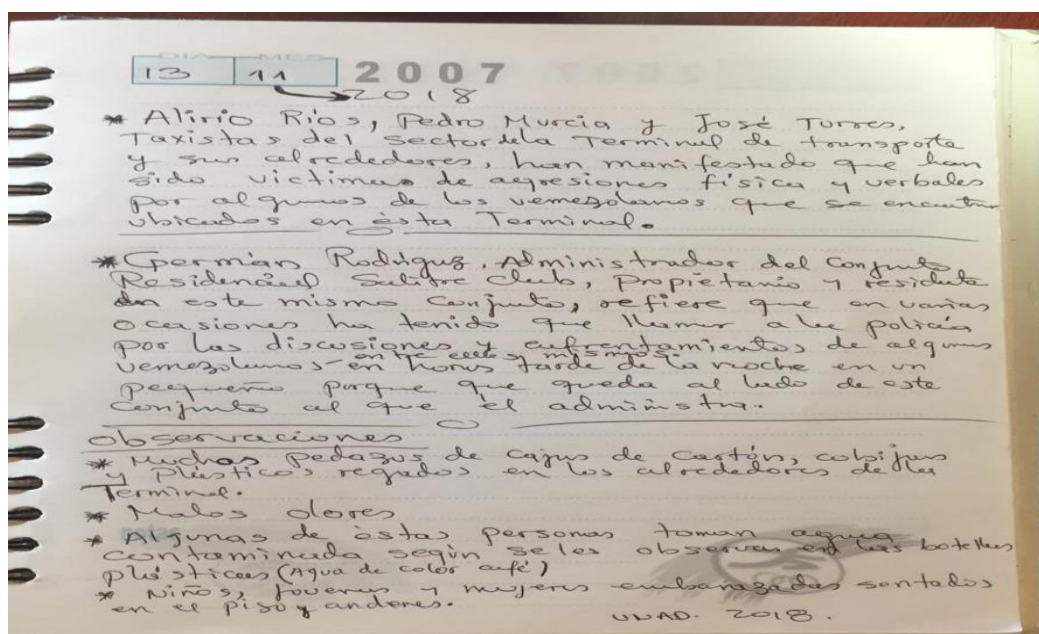 DIA MES
13 11 2007
2018
* Alirio Ríos, Pedro Murcia y José Torres,
Taxistas del sector dela Terminal de transporte
y sus alrededores, han manifestado que han
sido victimas de agresiones física y verbales
por algunos de los venezolanos que se encuentran
ubicados en ésta Terminal.
* Germán Rodríguez, Administrador del Conjunto
Residencial Salitre Club, propietario y residente
en este mismo Conjunto, refiere que en varias
ocasiones ha tenido que llamar a la policía
por las discusiones y enfrentamientos de algunos
entre ellos mismos
venezolanos - en horas tarde de la noche en un
pequeño parque que queda al lado de este
Conjunto al que él administra.
Observaciones
* Muchos pedazos de cajas de Cartón, cobijas
y plásticos regados en los alrededores de la
Terminal.
* Malos olores
* Algunas de éstas personas toman agua
contaminada según se les observa en las botellas
plásticas (Agua de color café)
* Niños, jovenes y mujeres embarazadas sentados
en el piso y andenes.
UNAD. 2018.